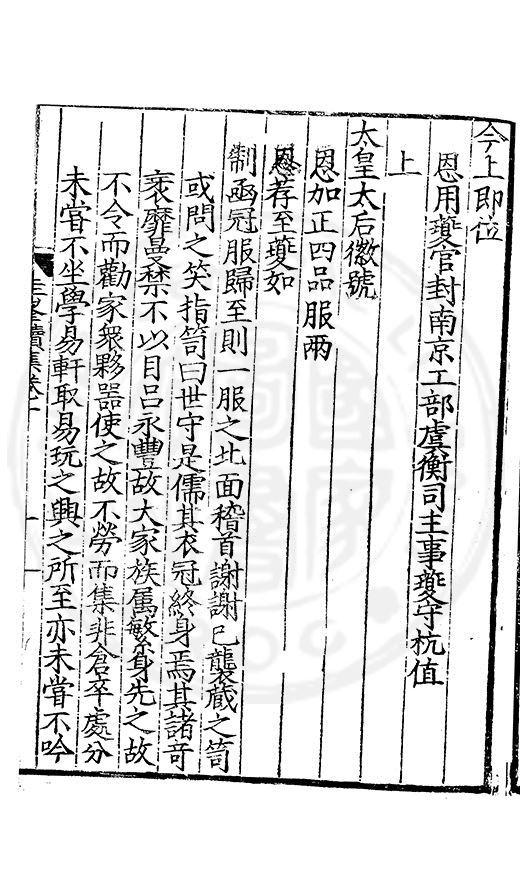 今上即位
恩用瓊官封南京工部虞衡司主事瓊守杭值
上
太皇太后徽號
恩加正四品服兩
恩荐至瓊如
制函冠服歸至則一服之北面稽首謝謝已襲藏之笥
或問之笑指笥曰世守是儒其衣冠終身焉其諸奇
袤靡曼禁不以目吕永豐故大家族属繁身先之故
不令而勸家衆夥器使之故不勞而集非倉卒處分
未嘗不坐學易軒取易玩之興之所至亦未嘗不吟